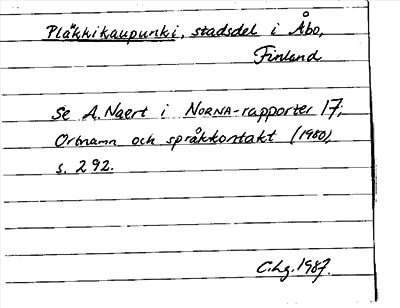 Pläkkikaupunki, stadsdel i Åbo,
Finland
Se A. Naert i NORNA-rapporter 17;
Ortnamn och språkkontakt (1980),
s. 292.
C.Lg. 1987.